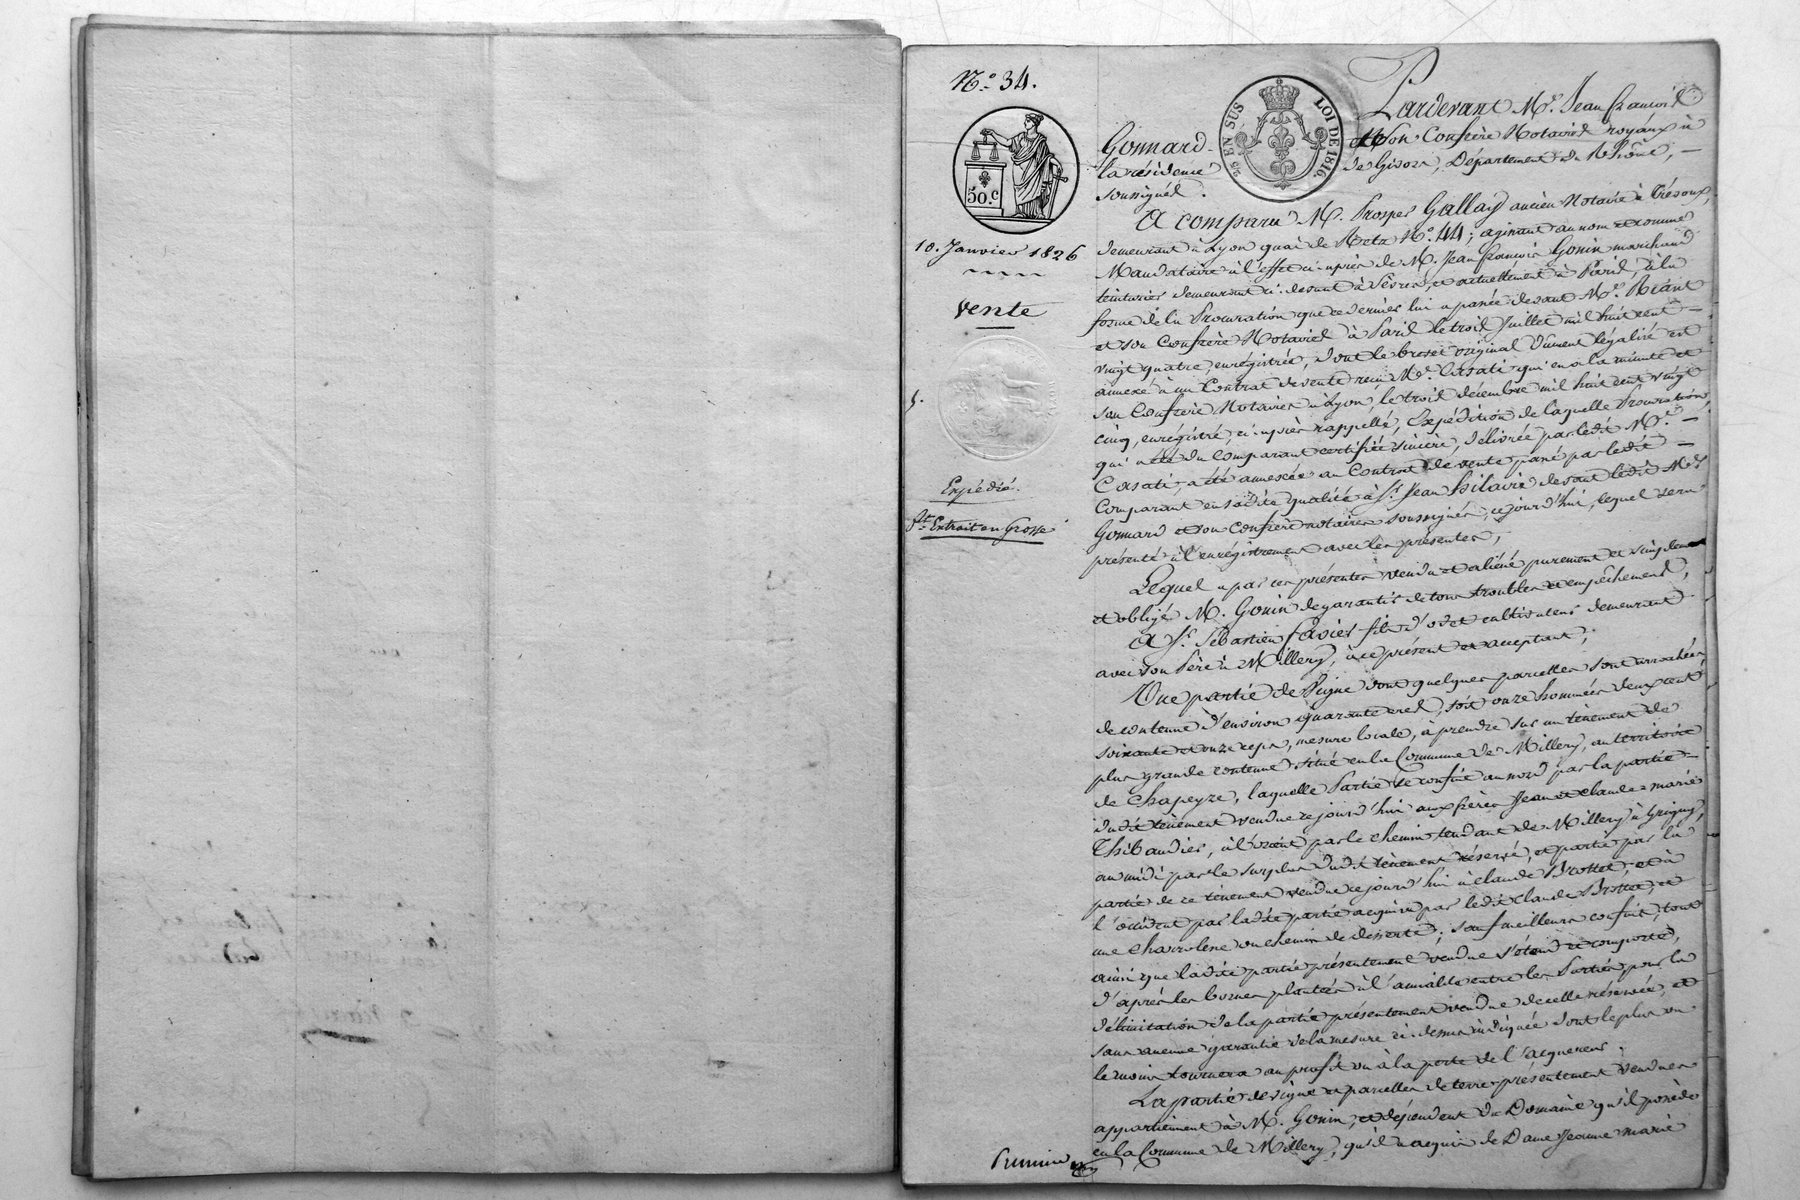 N.º 34.
50.c
10. Janvier 1826
Vente
Expédié.
Extrait en Grosse
25 EN SUS
LOI DE 1816.
Pardevant M.e Jean françois
Gonnard et son Confrère Notaires royaux à
la résidence de Givors, Département du Rhône, —
soussignés.
A comparu M. Prosper Gallay ancien Notaire à Trévoux,
demeurant à Lyon quai de Retz N.º 44; agissant au nom et comme
Mandataire à l'effet ci-après de M. Jean françois Gonin marchand
teinturier demeurant ci-devant à Sèvres, et actuellement à Paris, à la
forme de la Procuration que ce dernier lui a passée devant M.e Riant
et son Confrère Notaires à Paris le trois Juillet mil huit cent —
vingt quatre, enregistrée, dont le brevet original dûment légalisé est
annexé à un Contrat de vente reçu M.e Casati qui en a la minute et
son Confrère Notaires à Lyon, le trois décembre mil huit cent vingt
cinq, enregistré, ci-après rappellé, Expédition de laquelle Procuration,
qui a été du comparant certifiée sincère, délivrée par ledit M.e —
Casati, a été annexée au Contrat de vente passé par ledit —
Comparant en sadite qualité à S.r Jean hilaire devant ledit M.e
Gonnard et son Confrère notaires soussignés, cejourd'hui, lequel sera
présenté à l'enregistrement avec les présentes;
Lequel a par ces présentes vendu et aliéné purement et simplement
et obligé M. Gonin de garantir de tous troubles et empêchements,
A S.r Sébastien favier fils d' cultivateur demeurant
avec son Père à Millery, à ce présent et acceptant;
Une partie de Vigne dont quelques parcelles sont arrachées
de contenue d'environ quarante ares, soit onze hommées deux cent
soixante et onze ceps, mesure locale, à prendre sur un tènement de
plus grande contenue situé en la Commune de Millery, au territoire
de Chapeyze, laquelle Partie se confine au nord par la partie —
dudit tènement vendue cejourd'hui aux frères Jean et claude-marie
Thibaudier, à l'orient par le chemin tendant de Millery à Grigny,
au midi par le surplus dudit tènement réservé, et partie par la
partie de ce tènement vendue cejourd'hui à claude Brottet, et à
l'occident par ladite partie acquise par ledit claude Brottet, et
une charrolène ou chemin de desserte; sauf meilleurs confins; tout
ainsi que ladite partie présentement vendue s'étend et comporte,
d'après les bornes plantées à l'amiable entre les Parties pour la
délimitation de la partie présentement vendue de celle réservée, et
sans aucune garantie de la mesure ci-dessus indiquée dont le plus ou
le moins tournera au profit ou à la perte de l'acquéreur.
La partie de vigne et parcelles de terre présentement vendues
appartiennent à M. Gonin, et dépendent du Domaine qu'il possède
en la Commune de Millery, qu'il a acquis de Dame Jeanne marie